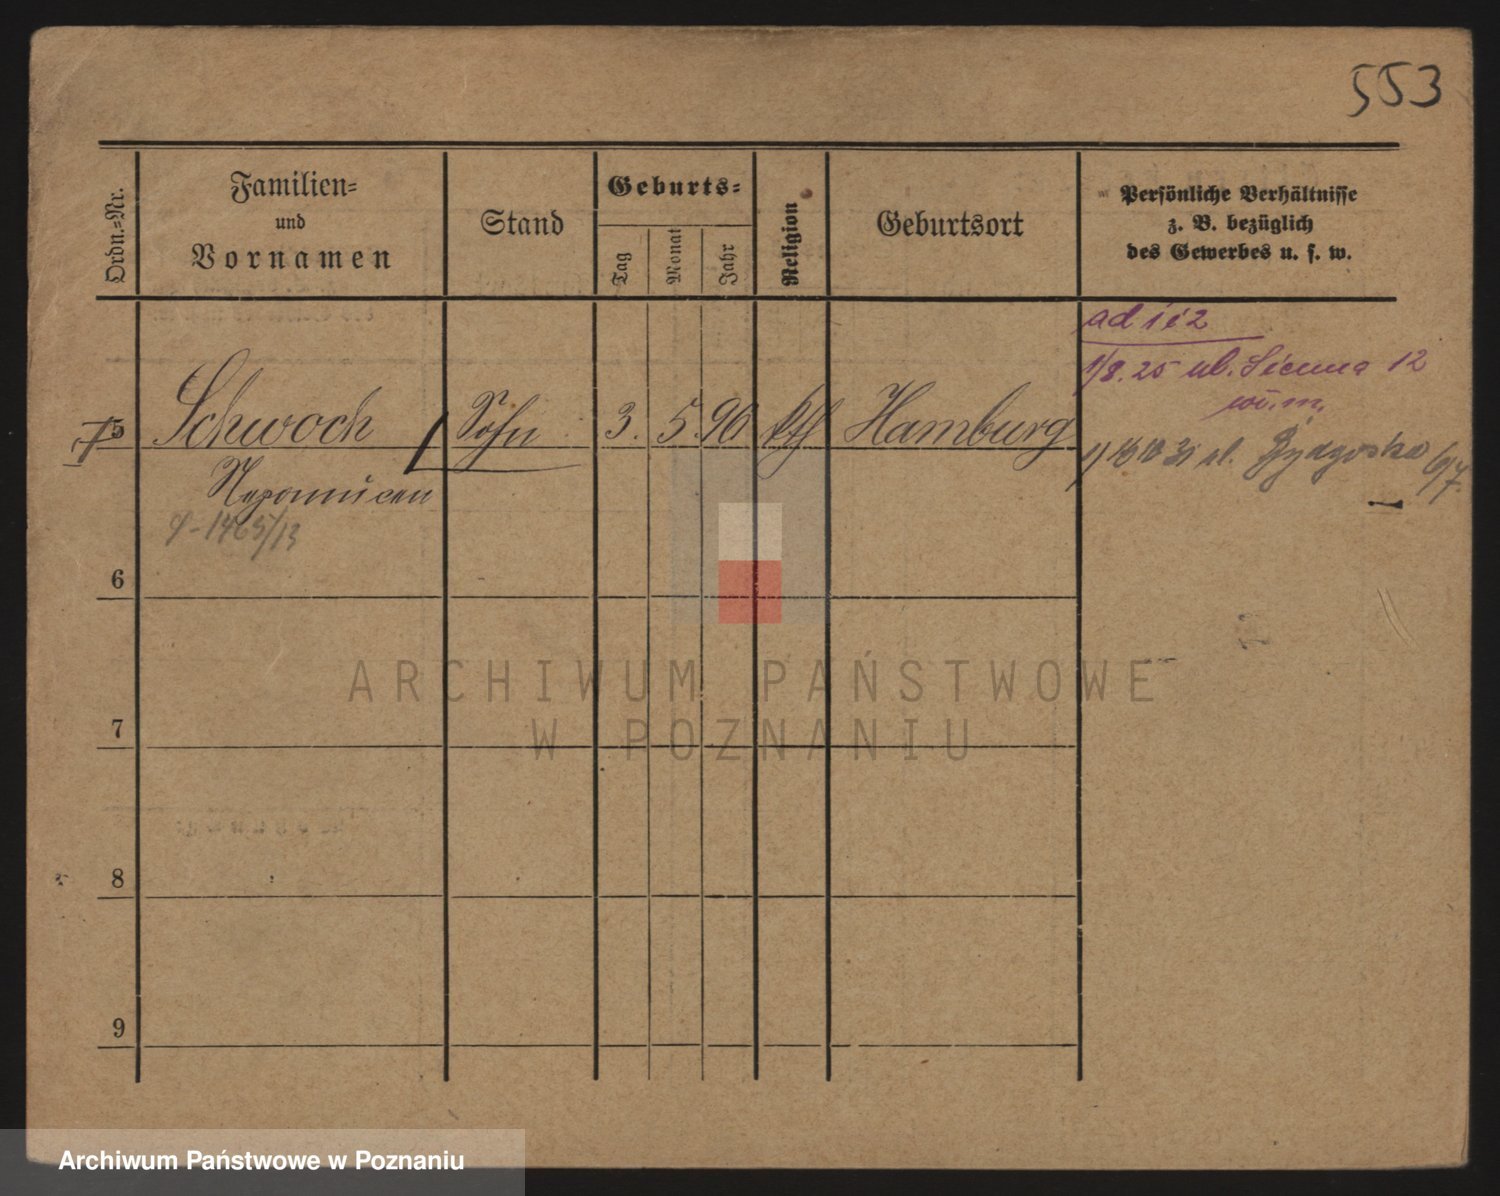 553
Ordn.=Nr.
Familien=
und
Vornamen
Stand
Geburts=
Tag
Monat
Jahr
Religion
Geburtsort
Persönliche Verhältnisse
z. B. bezüglich
des Gewerbes u. s. w.
ad 1 i 2
1/8. 25 ul. Sienna 12
5 Schwoch Sohn 3. 5. 96 kth Hamburg
Nepomucen
ul. Bydgoska 6/7.
6
ARCHIWUM PAŃSTWOWE
W POZNANIU
7
8
9
Archiwum Państwowe w Poznaniu